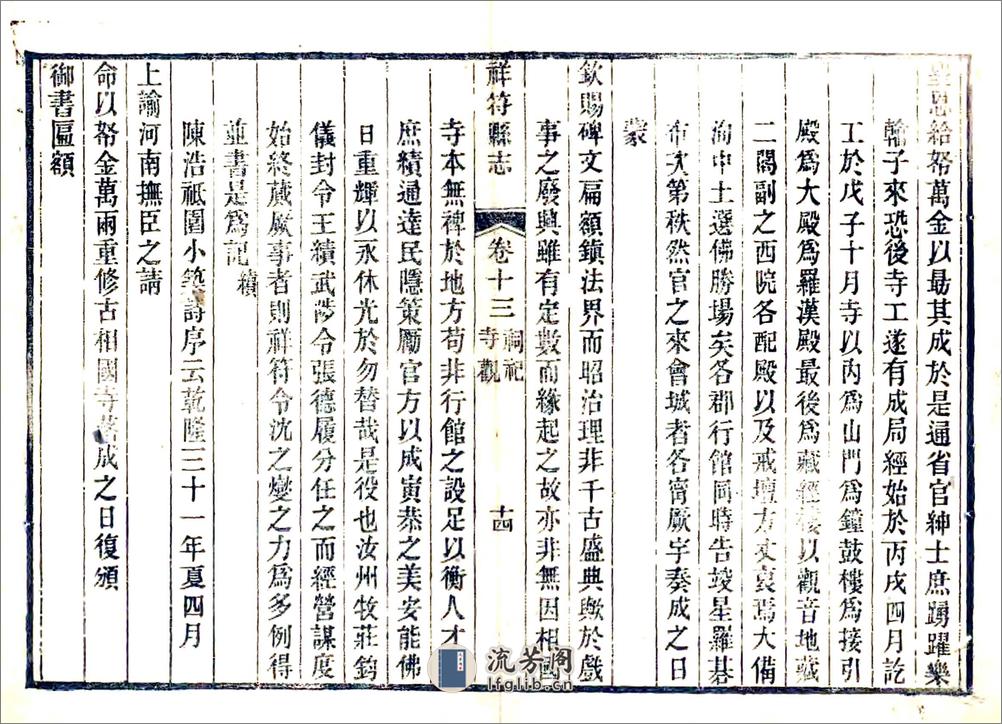 皇恩給帑萬金以最其成於是通省官紳士庶踴躍樂
輸子來恐後寺工遂有成局經始於丙戌四月訖
工於戊子十月寺以內為山門為鐘鼓樓為接引
殿為大殿為羅漢殿最後為藏經樓以觀音地藏
二閣副之西院各配殿以及戒壇方丈裒焉大備
洵中土選佛勝場矣各郡行館同時告竣星羅棊
布次第秩然官之來會城者各寗厥宇奏成之日
蒙
欽賜碑文扁額鎮法界而昭治理非千古盛典歟於戲
事之廢興雖有定數而緣起之故亦非無因相國
祥符縣志 卷十三 祠祀 寺觀 十四
寺本無裨於地方苟非行館之設足以衡人才
庶績通達民隱策勵官方以成寅恭之美安能佛
日重輝以永休光於勿替哉是役也汝州牧莊鈞
儀封令王績武陟令張德履分任之而經營謀度
始終蕆厥事者則祥符令沈之燮之力為多例得
並書是為記 續
陳浩祗園小築詩序云乾隆三十一年夏四月
上諭河南撫臣之請
命以帑金萬兩重修古相國寺落成之日復頒
御書匾額
流芳閣
lfglib.cn